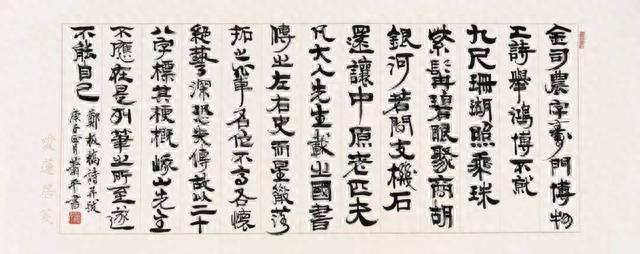 金司農字壽門博物
工詩舉鴻博不就
九尺珊瑚照乘珠
紫髯碧眼聚商胡
銀河若問支機石
還讓中原老匹夫
凡大人先生載之國書
傳之左右史而星散落
拓之輩名位不高各懷
絕藝深恐失傳故以二十
八字標其梗概峨山先生
不應在是列筆之所至遂
不能自已
鄭板橋詩并跋
庚子月蕭平書
愛蓮居箋